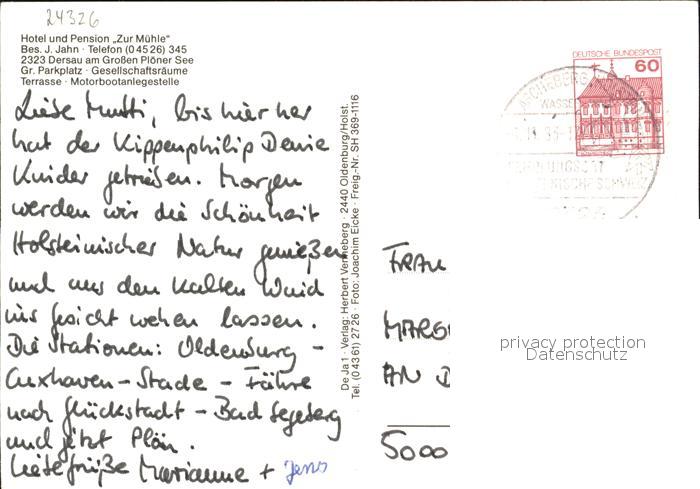 24326
Hotel und Pension „Zur Mühle"
Bes. J. Jahn · Telefon (0 45 26) 345
2323 Dersau am Großen Plöner See
Gr. Parkplatz · Gesellschaftsräume
Terrasse · Motorbootanlegestelle
Liebe Mutti, bis hier her
hat der Kippenphilip Deine
Kinder getrieben. Morgen
werden wir die Schönheit
Holsteinischer Natur genießen
und uns den kalten Wind
ins Gesicht wehen lassen.
Die Stationen: Oldenburg -
Cuxhaven - Stade - Fähre
nach Glückstadt - Bad Segeberg
und jetzt Plön.
Liebe Grüße Marianne + Jens
De Ja 1 · Verlag: Herbert Vermeberg · 2440 Oldenburg/Holst.
Tel. (0 43 61) 27 26 · Foto: Joachim Eicke · Freig.-Nr. SH 369-1116
DEUTSCHE BUNDESPOST
60
ASCHEBERG
WASSE
FRAU
MARG
AN D
5000
privacy protection
Datenschutz